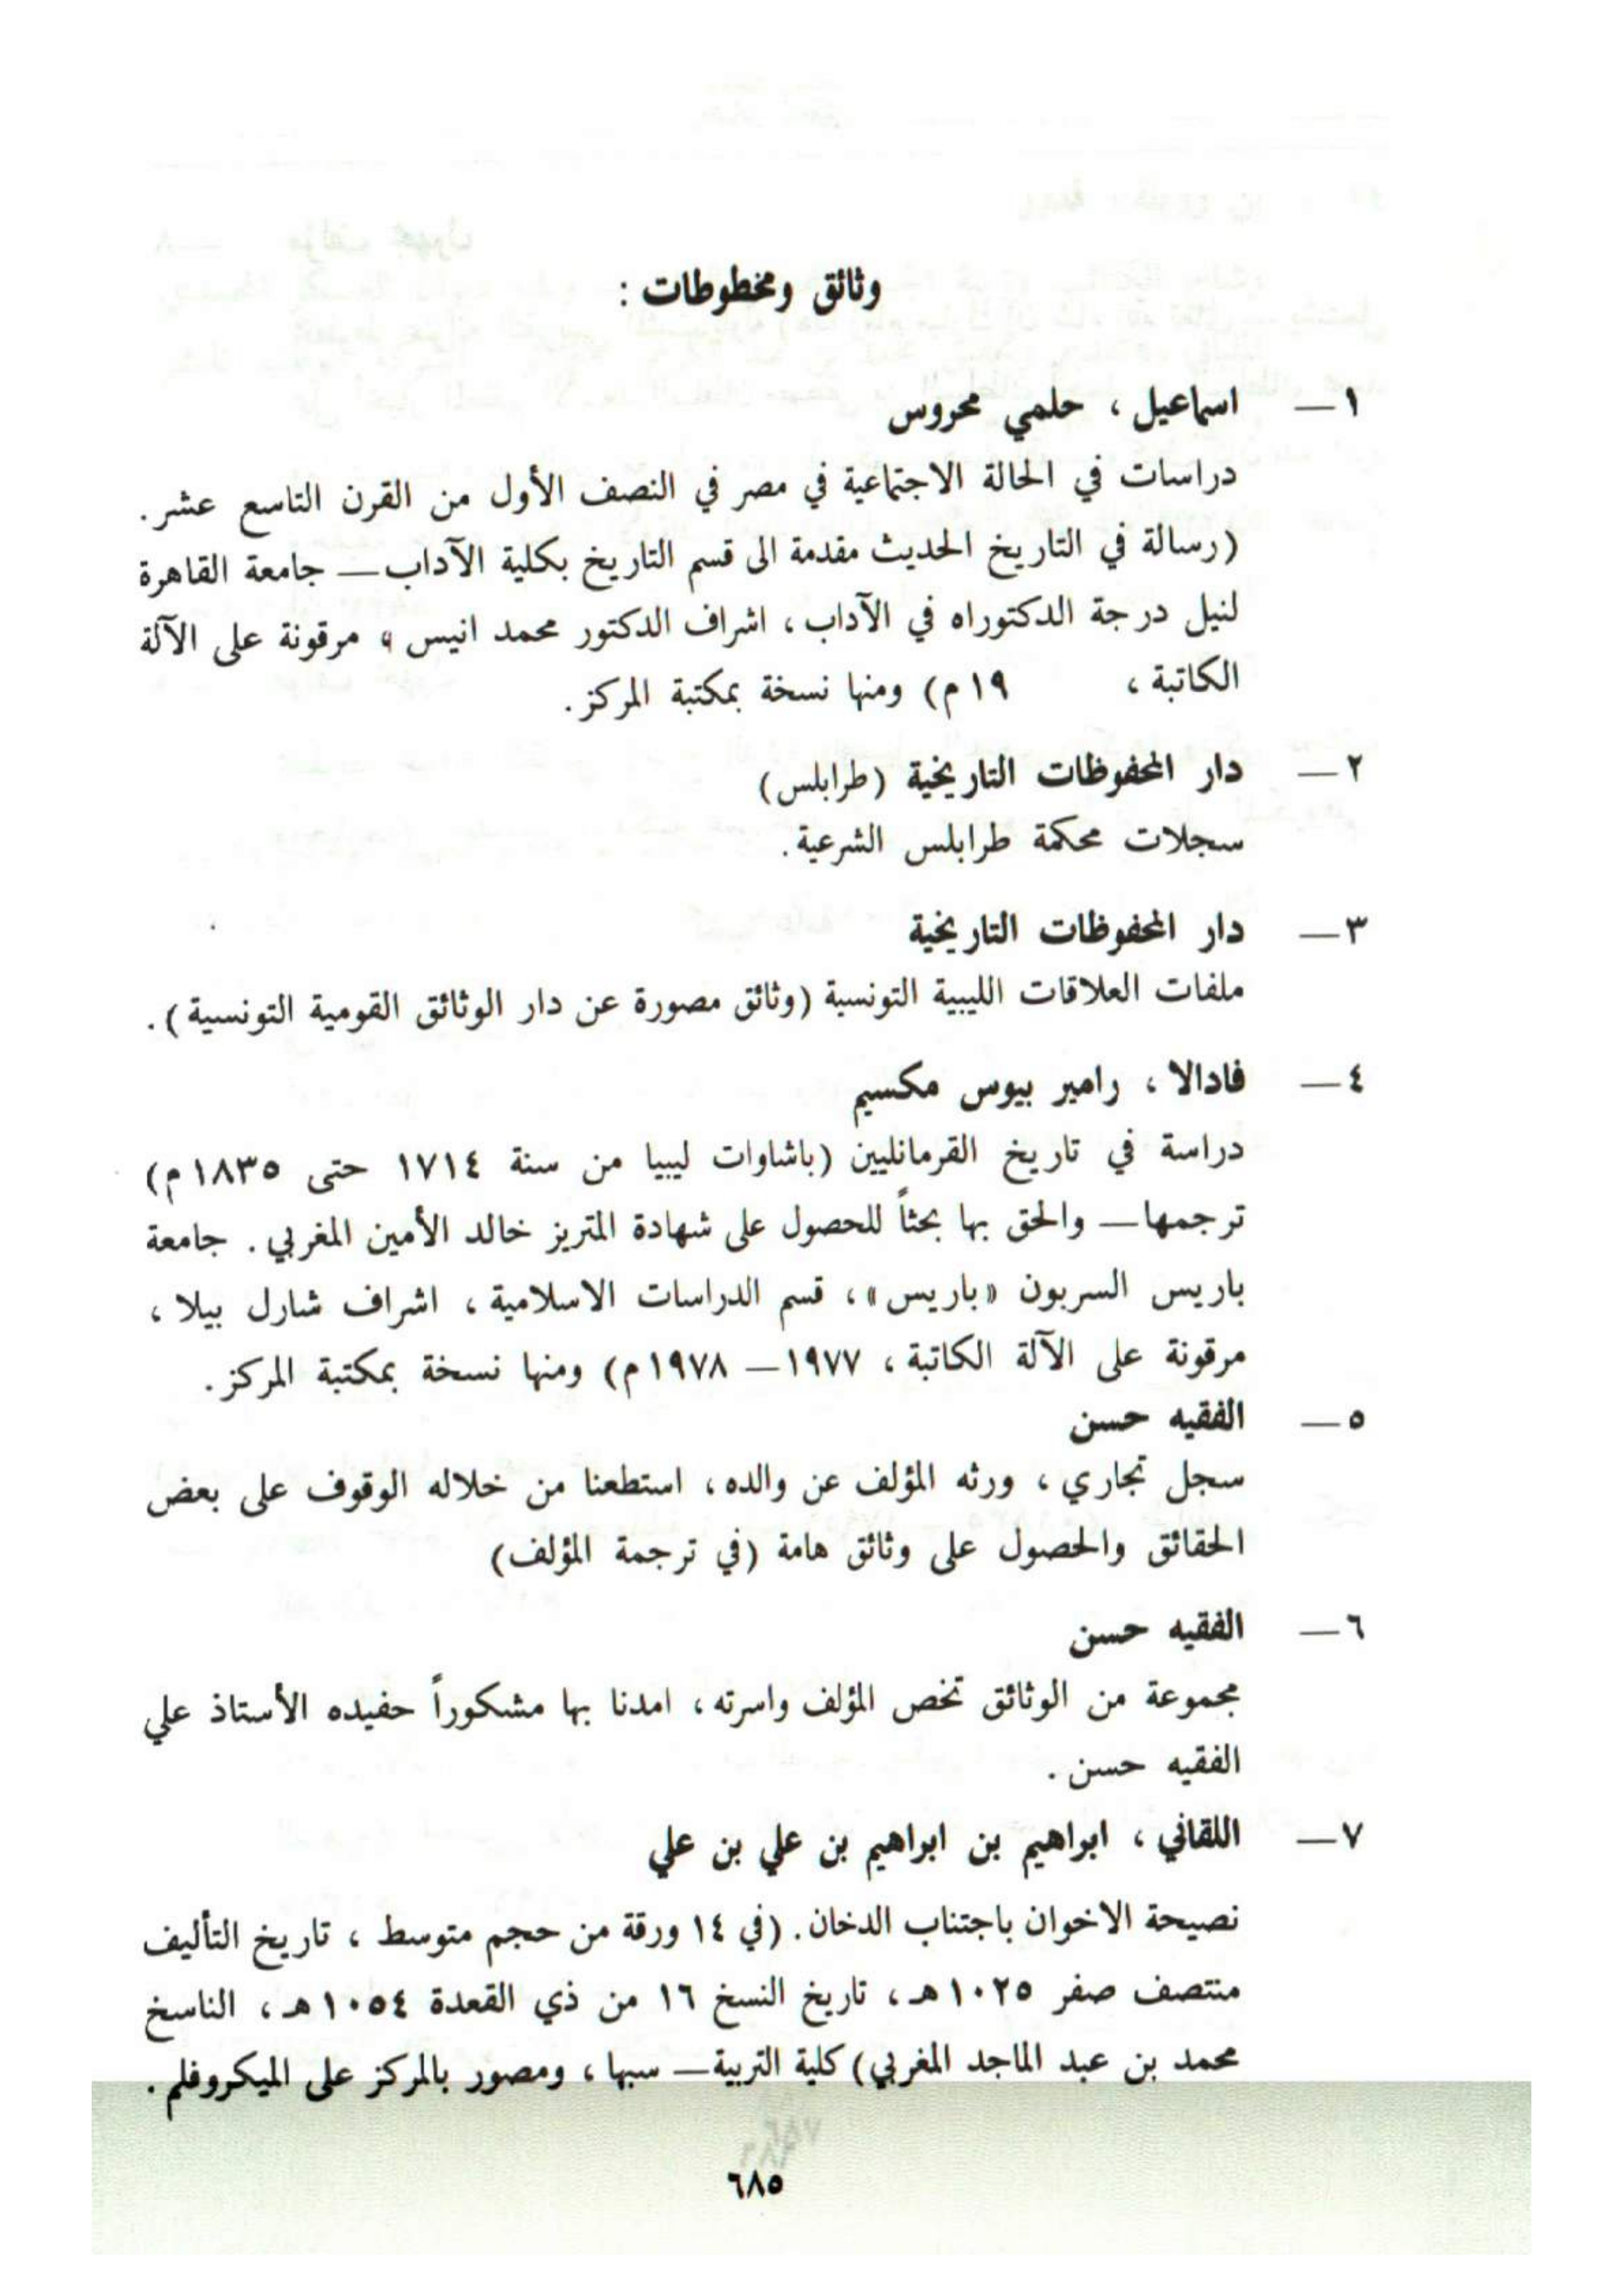 وثائق ومخطوطات :
١ — اسماعيل ، حلمي محروس
دراسات في الحالة الاجتماعية في مصر في النصف الأول من القرن التاسع عشر .
(رسالة في التاريخ الحديث مقدمة الى قسم التاريخ بكلية الآداب — جامعة القاهرة
لنيل درجة الدكتوراه في الآداب ، اشراف الدكتور محمد انيس ، مرقونة على الآلة
الكاتبة ، ١٩م) ومنها نسخة بمكتبة المركز .
٢ — دار المحفوظات التاريخية (طرابلس)
سجلات محكمة طرابلس الشرعية .
٣ — دار المحفوظات التاريخية
ملفات العلاقات الليبية التونسية (وثائق مصورة عن دار الوثائق القومية التونسية) .
٤ — فادالا ، رامير بيوس مكسيم
دراسة في تاريخ القرمانليين (باشاوات ليبيا من سنة ١٧١٤ حتى ١٨٣٥م)
ترجمها — والحق بها بحثاً للحصول على شهادة المتريز خالد الأمين المغربي . جامعة
باريس السربون «باريس» ، قسم الدراسات الاسلامية ، اشراف شارل بيلا ،
مرقونة على الآلة الكاتبة ، ١٩٧٧ — ١٩٧٨م) ومنها نسخة بمكتبة المركز .
٥ — الفقيه حسن
سجل تجاري ، ورثه المؤلف عن والده ، استطعنا من خلاله الوقوف على بعض
الحقائق والحصول على وثائق هامة (في ترجمة المؤلف)
٦ — الفقيه حسن
مجموعة من الوثائق تخص المؤلف واسرته ، امدنا بها مشكوراً حفيده الأستاذ علي
الفقيه حسن .
٧ — اللقاني ، ابراهيم بن ابراهيم بن علي بن علي
نصيحة الاخوان باجتناب الدخان . (في ١٤ ورقة من حجم متوسط ، تاريخ التأليف
منتصف صفر ١٠٢٥هـ ، تاريخ النسخ ١٦ من ذي القعدة ١٠٥٤هـ ، الناسخ
محمد بن عبد الماجد المغربي) كلية التربية — سبها ، ومصور بالمركز على الميكروفلم .
٦٨٥